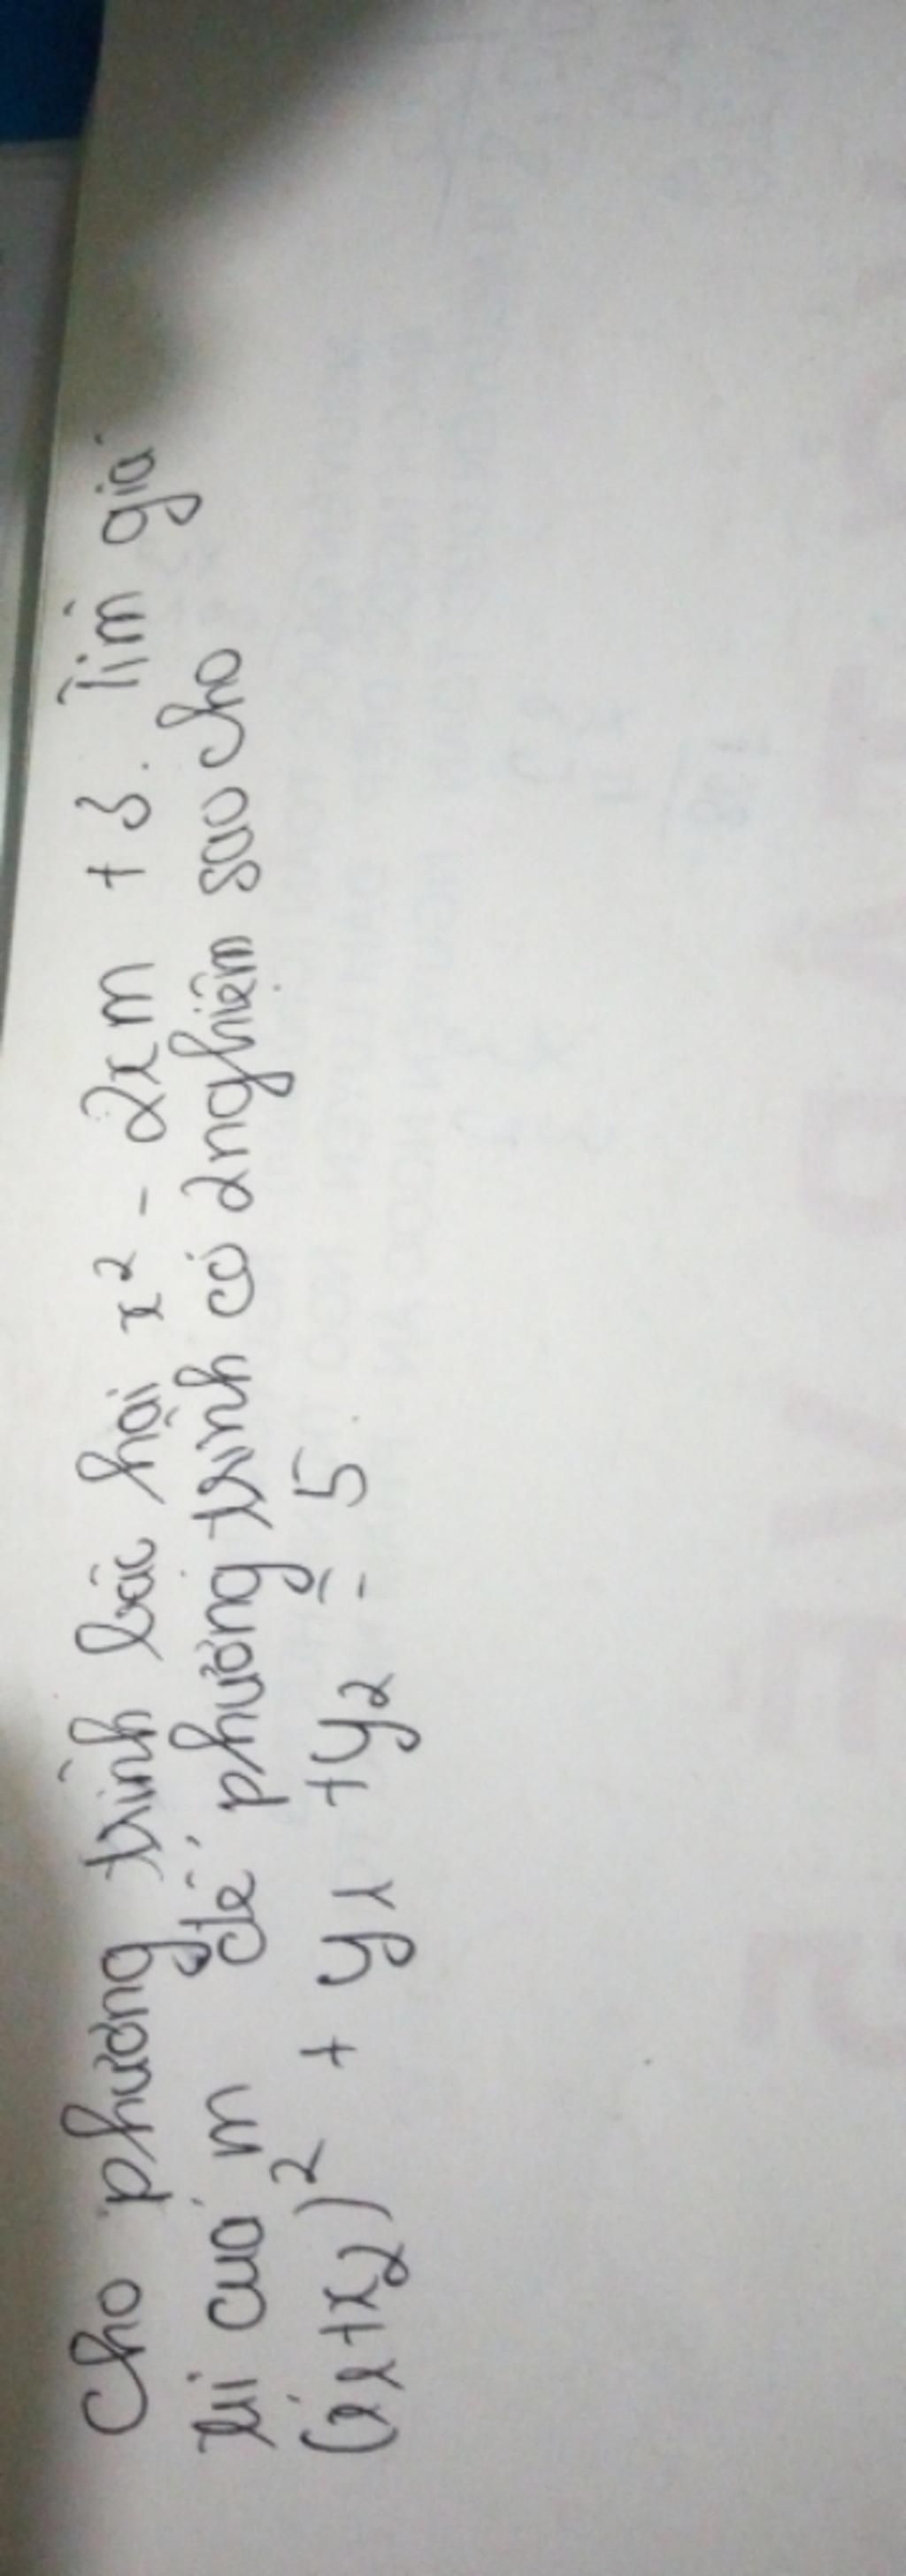 Cho phương trình bậc hai x² - 2xm + 3. Tìm giá
trị của m để phương trình có 2 nghiệm sao cho
(x₁+x₂)² + y₁ + y₂ = 5.